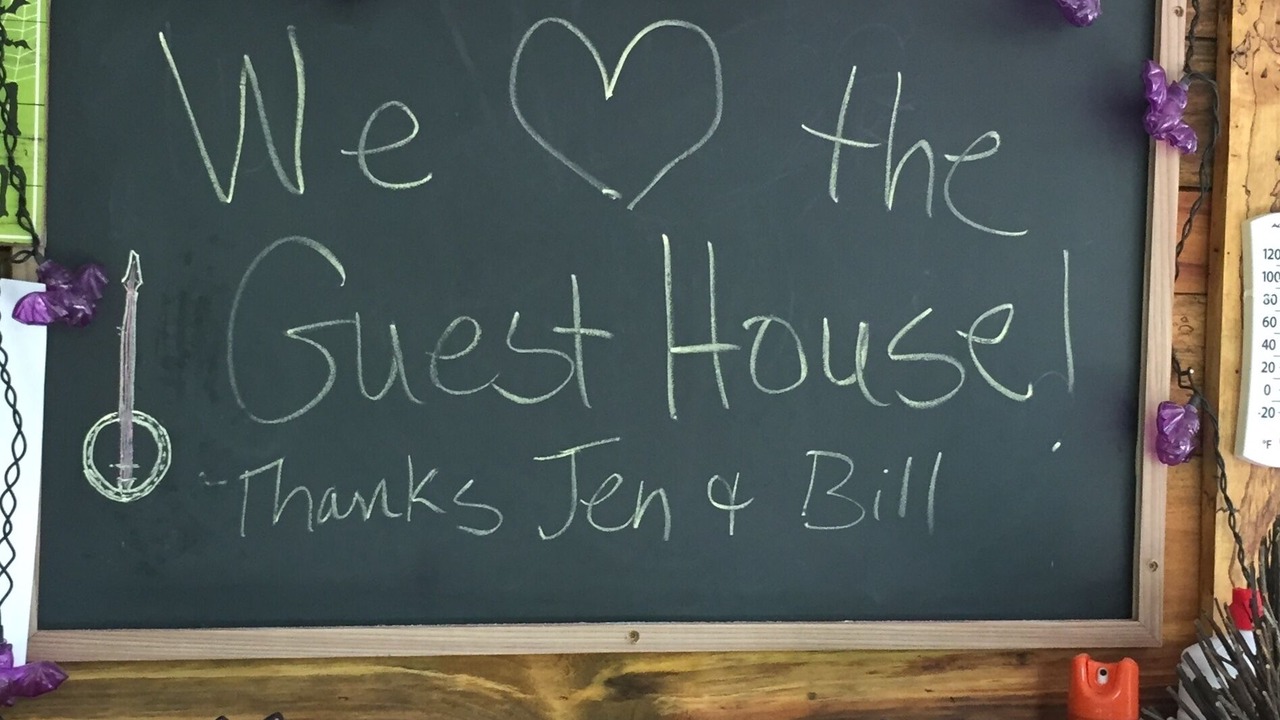 We ♡ the
Guest House!
Thanks Jen & Bill
120
100
80
60
40
20
0
-20
°F